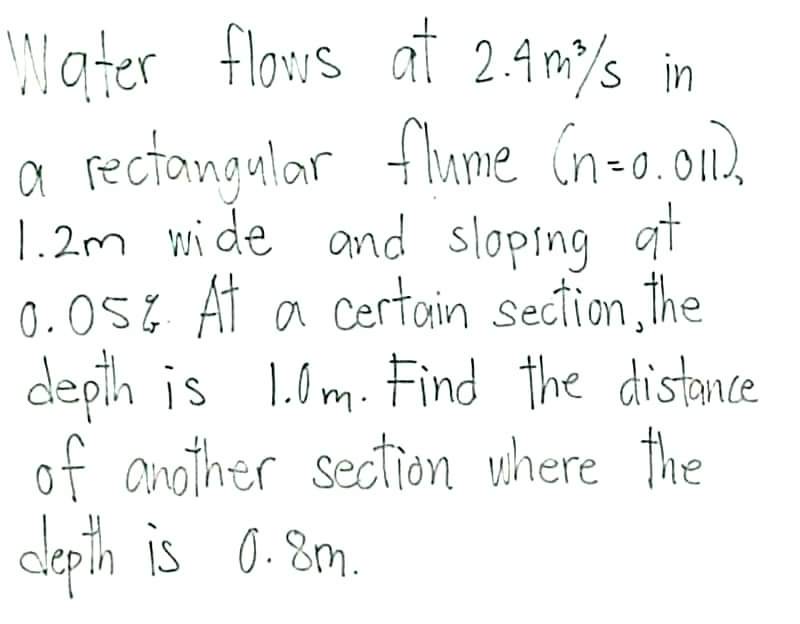 Water flows at 2.4m³/s in
a rectangular flume (n=0.011),
1.2m wide and sloping at
0.05%. At a certain section, the
depth is 1.0m. Find the distance
of another section where the
depth is 0.8m.